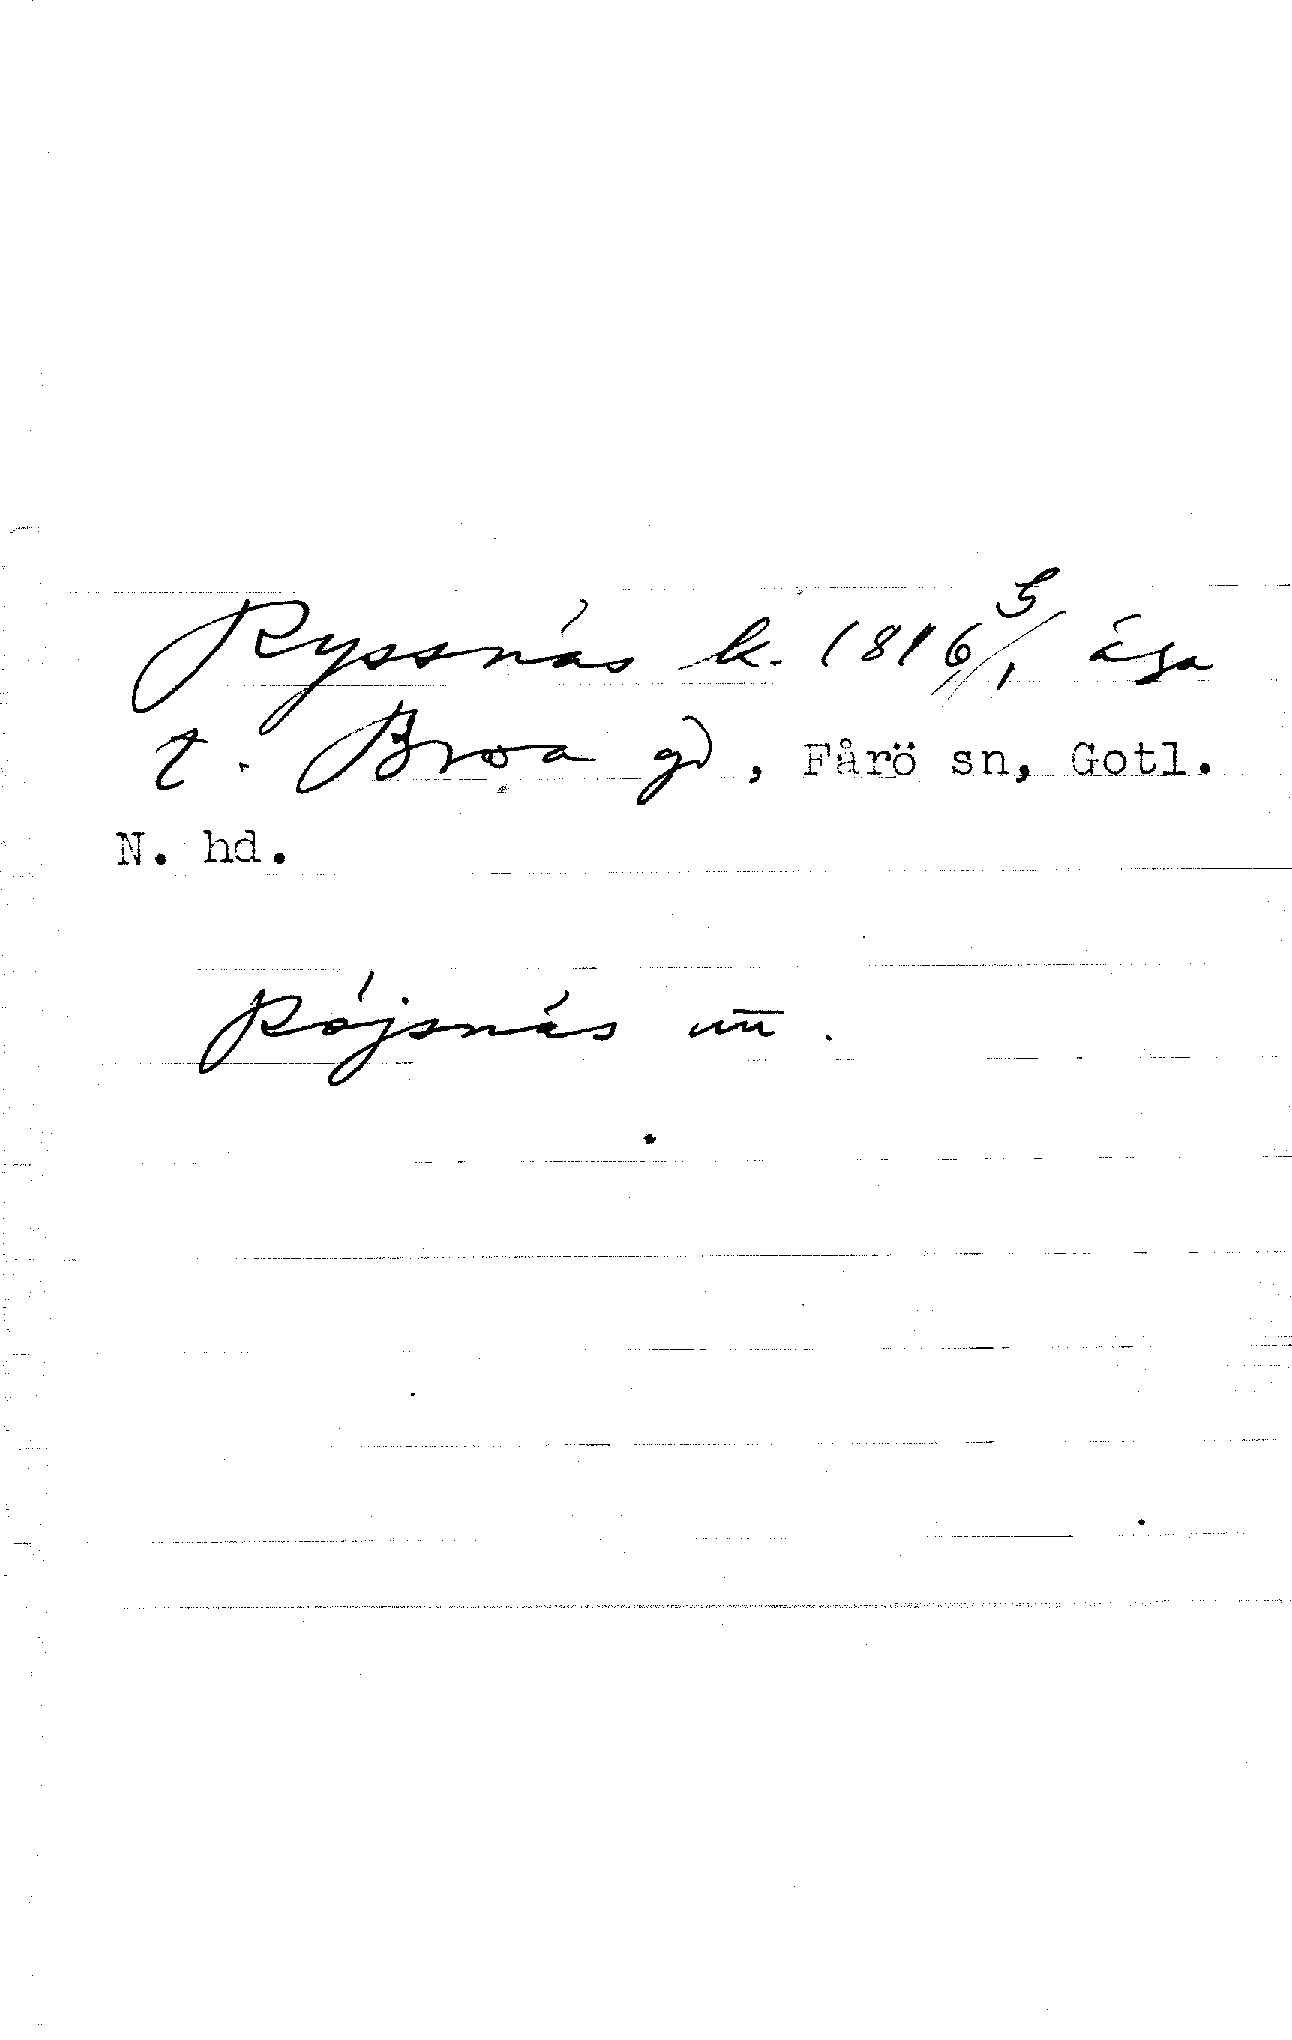 Ryssnäs k. 1816 5/1 äga
t. Broa gd, Fårö sn, Gotl.
N. hd.
Röjsnäs